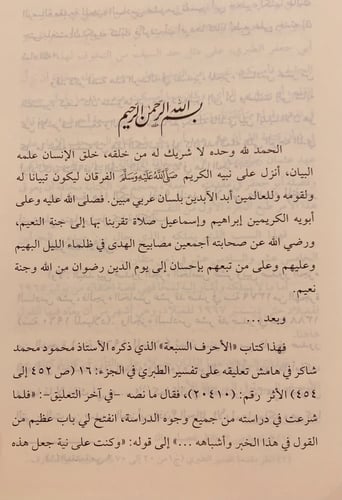 بسم الله الرحمن الرحيم
الحمد لله وحده لا شريك له من خلقه، خلق الإنسان علمه
البيان، أنزل على نبيه الكريم ﷺ الفرقان ليكون تبيانا له
ولقومه وللعالمين أبد الأبدين بلسان عربي مبين. فصلى الله عليه وعلى
أبويه الكريمين إبراهيم وإسماعيل صلاة تقربنا بها إلى جنة النعيم،
ورضي الله عن صحابته أجمعين مصابيح الهدى في ظلماء الليل البهيم
وعليهم وعلى من تبعهم بإحسان إلى يوم الدين رضوان من الله وجنة
نعيم.
وبعد ...
فهذا كتاب «الأحرف السبعة» الذي ذكره الأستاذ محمود محمد
شاكر في هامش تعليقه على تفسير الطبري في الجزء: ١٦ (ص ٤٥٢ إلى
٤٥٤) الأثر رقم: (٢٠٤١٠)، فقال ما نصه -في آخر التعليق-: «فلما
شرعت في دراسته من جميع وجوه الدراسة، انفتح لي باب عظيم من
القول في هذا الخبر وأشباهه ...» إلى قوله: «وكنت على نية جعل هذه